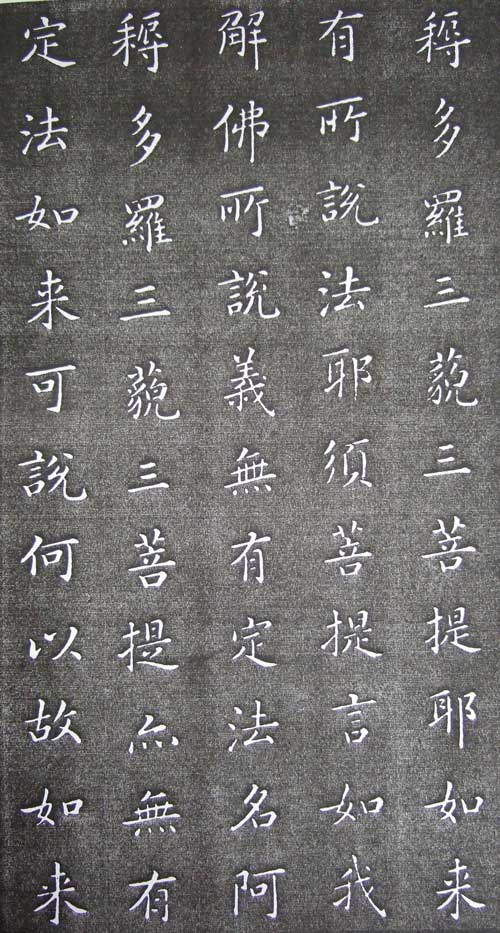 耨多羅三藐三菩提耶如来
有所說法耶須菩提言如我
解佛所說義無有定法名阿
耨多羅三藐三菩提亦無有
定法如来可說何以故如来